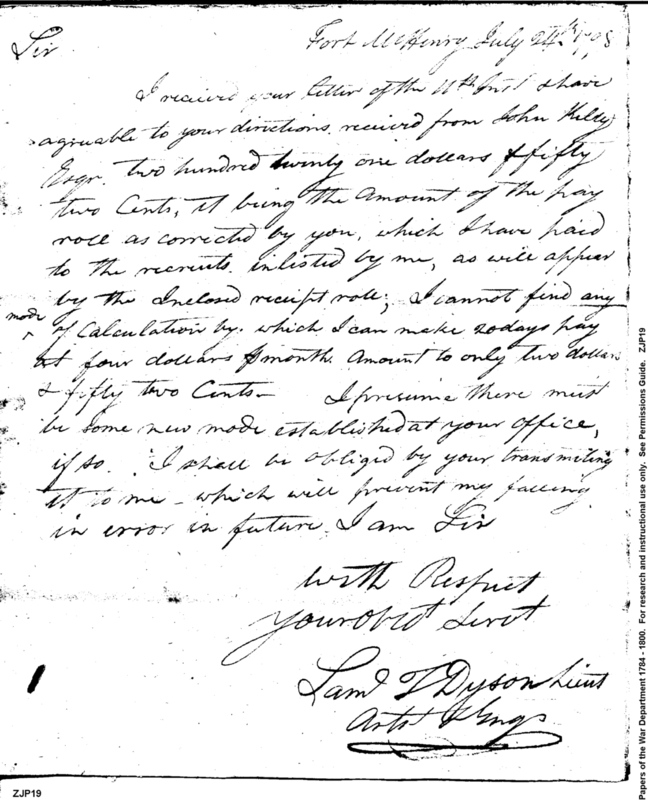 Fort McHenry July 24th 1798
Sir
I recieved your letter of the 11th Inst I have
agreable to your directions, recieved from John Kilty
Esqr. two hundred twenty one dollars & fifty
two Cents, it being the Amount of the pay
roll as corrected by you, which I have paid
to the recruits inlisted by me, as will appear
by the Inclosed receipt roll; I cannot find any
mode
of Calculation by which I can make 20 days pay
at four dollars pr month Amount to only two dollars
& fifty two Cents— I presume there must
be some new mode established at your office,
if so. I shall be obliged by your transmiting
it to me – which will prevent my falling
in error in future. I am Sir
with Respect
your Obdt Servt
Saml T Dyson Lieut
Arts & Engs
ZJP19
Papers of the War Department 1784 - 1800. For research and instructional use only. See Permissions Guide. ZJP19